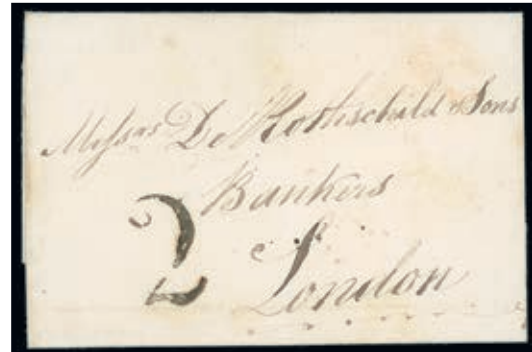 Messrs De Rothschild & Sons
Bankers
2 London